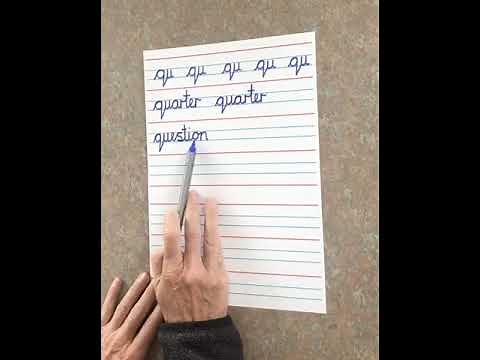 qu qu qu qu qu
quarter quarter
question